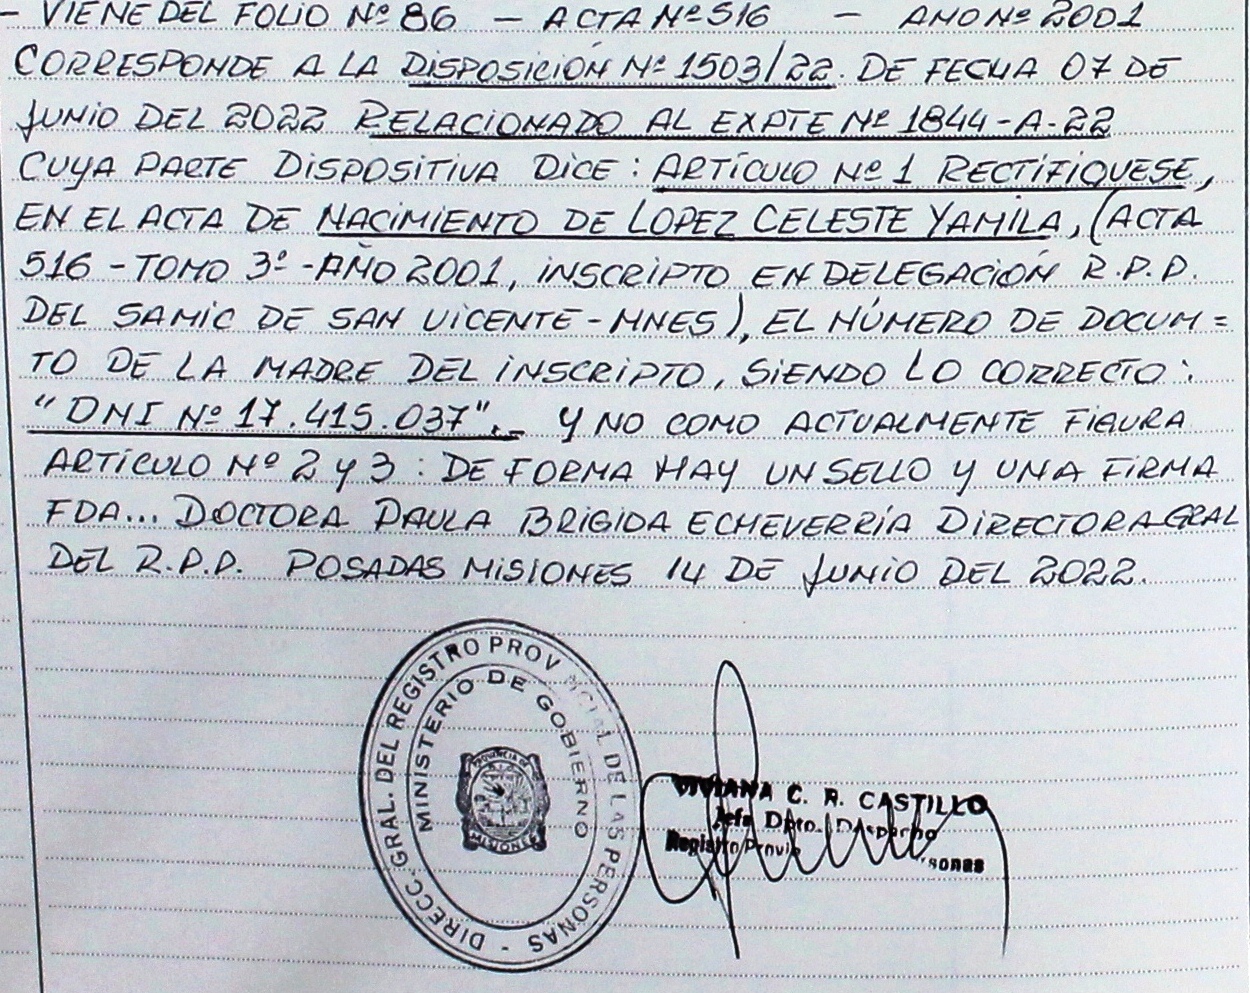 - VIENE DEL FOLIO Nº 86 - ACTA Nº 516 - AÑO Nº 2001
CORRESPONDE A LA DISPOSICIÓN Nº 1503/22. DE FECHA 07 DE
JUNIO DEL 2022 RELACIONADO AL EXPTE Nº 1844-A-22
CUYA PARTE DISPOSITIVA DICE: ARTÍCULO Nº 1 RECTIFIQUESE,
EN EL ACTA DE NACIMIENTO DE LOPEZ CELESTE YAMILA, (ACTA
516 - TOMO 3º - AÑO 2001, INSCRIPTO EN DELEGACIÓN R.P.P.
DEL SAMIC DE SAN VICENTE - MNES), EL NÚMERO DE DOCUM=
TO DE LA MADRE DEL INSCRIPTO, SIENDO LO CORRECTO:
"DNI Nº 17.415.037".- Y NO COMO ACTUALMENTE FIGURA
ARTÍCULO Nº 2 y 3: DE FORMA HAY UN SELLO Y UNA FIRMA
FDA... DOCTORA PAULA BRIGIDA ECHEVERRÍA DIRECTORA GRAL
DEL R.P.P. POSADAS MISIONES 14 DE JUNIO DEL 2022.
DIRECC. GRAL. DEL REGISTRO PROVINCIAL DE LAS PERSONAS -
MINISTERIO DE GOBIERNO
PROVINCIA DE
MISIONES
VIVIANA C. R. CASTILLO
Jefa Dpto. Despacho
Registro